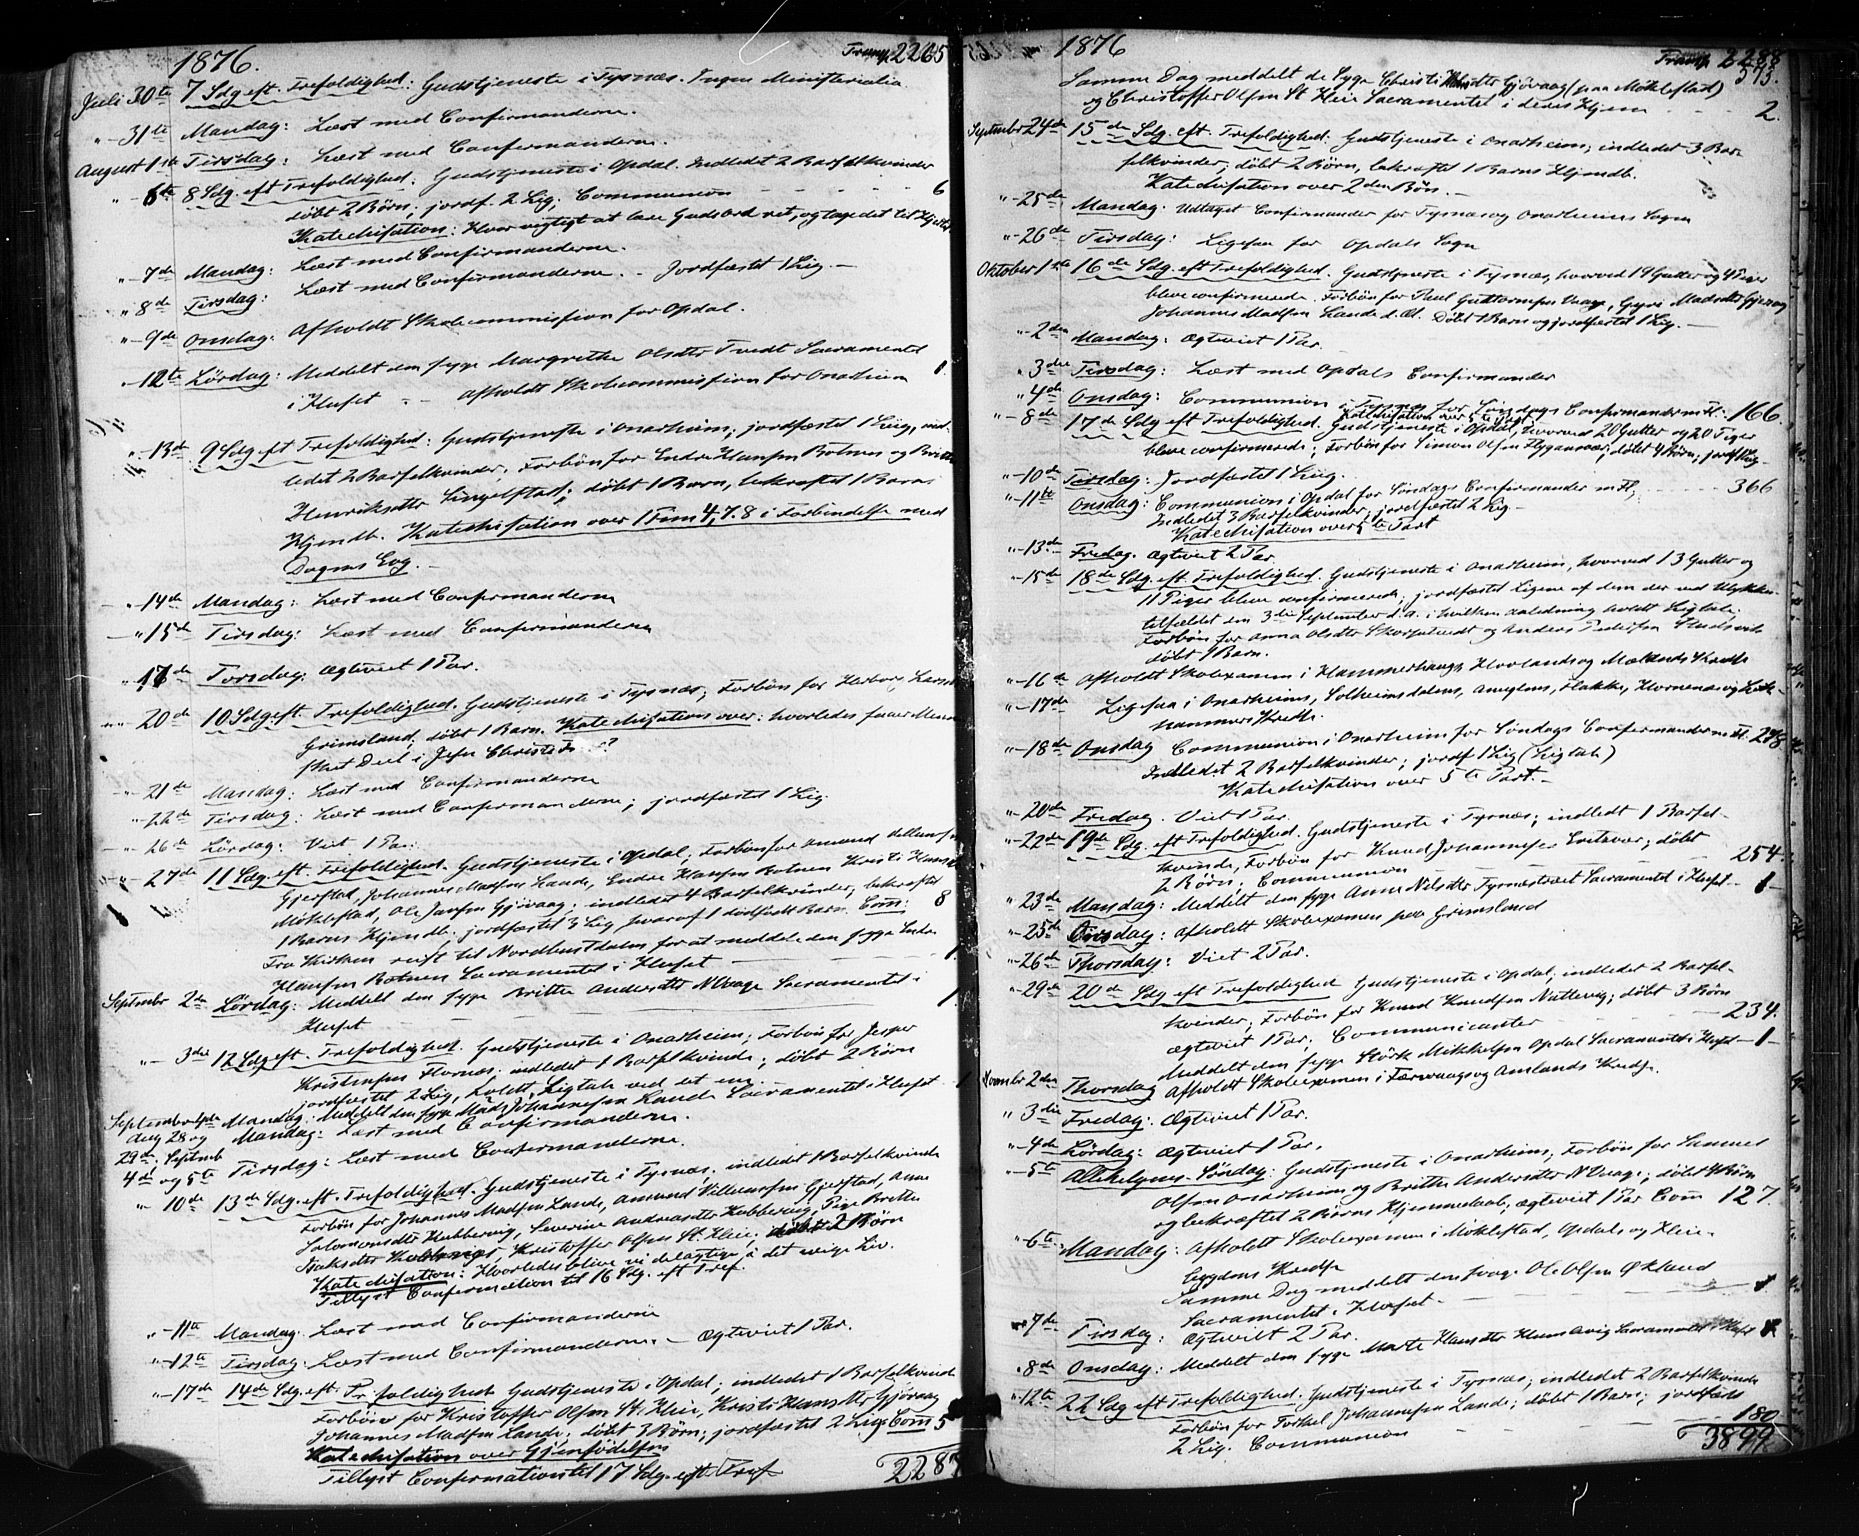 1876.
Transp. 2265
Juli 30te 7 Sdg. eft. Trefoldighed: Gudstjeneste i Tysnæs. Ingen Ministerialia
" - 31te Mandag: Læst med Confirmanderne.
August 1ste Tirsdag: Læst med Confirmanderne.
" - 6te 8 Sdg. eft Trefoldighed: Gudstjeneste i Opdal. Indledet 2 Barselkvinder
døbt 2 Børn; jordf. 2 Lig; Communion - - - 6
Katechisation: Hvor vigtigt at læse Guds Ord ret, og tage det til Hjertet
" - 7de Mandag: Læst med Confirmanderne.
" 8de Tirsdag: Læst med Confirmanderne. - Jordfæstet 1 Lig. -
" - 9de Onsdag: Afholdt Skolecommission for Opdal.
" - 12te Lørdag: Meddelt den syge Margrethe Olsdtr Tvedt Sacramentet
i Huset - - Afholdt Skolecommission for Onarheim 1
" - 13de 9 Sdg. eft Trefoldighed: Gudstjeneste i Onarheim; jordfæstet 1 Lig, ind-
ledet 2 Barselkvinder; Forbøn for Endre Hansen Botnen og Britte
Henriksdtr Singelstad; døbt 1 Barn, bekræftet 1 Barns
Hjemdb. Katechisation over 1 Tim 4, 7. 8 i Forbindelse med
Dagens Evg. -
" - 14de Mandag: Læst med Confirmanderne
" - 15de Tirsdag: Læst med Confirmanderne
" 17de Torsdag: Ægteviet 1 Par.
" - 20de 10 Sdg. eft. Trefoldighed. Gudstjeneste i Tysnæs; Forbøn for
Grimsland; døbt 1 Barn. Katechisation over: hvorledes faaer Menne-
sket Deel i Jesu Christi
" - 21de Mandag: Læst med Confirmanderne
" - 22de Tirsdag: Læst med Confirmanderne; jordfæstet 1 Lig.
" - 26de Lørdag: Viet 1 Par.
" - 27de 11 Sdg. eft. Trefoldighed. Gudstjeneste i Opdal; Forbøn for Amund
Gjerstad, Johannes Madsen Lande, Endre Hansen Botnen Kristi Hansdtr
Møklestad, Ole Jansen Gjøvaag; indledet 4 Barselkvinder, bekræftet
1 Barns Hjemdb. jordfæstet 3 Lig, hvoraf 1 dødfødt Barn. Com: 8
Fra Kirken reist til Nordbustdalen for at meddele den syge Endre
Hansen Botnen Sacramentet i Huset - 1.
Septmbr 2den Lørdag: Meddelt den syge Britte Andersdtr N Vaage Sacramentet i
Huset - - - 1.
" - 3die 12 Sdg. eft. Trefoldighed. Gudstjeneste i Onarheim; Forbøn for Jesper
Kristensen Flornæs; indledet 1 Barselkvinde; døbt 2 Børn
jordfæstet 2 Lig, holdt Ligtale ved det ene.
September 4de Mandag: Meddelt den syge Mads Johannesen Lande Sacramentet i Huset 1
Aug 28 og Mandag: Læst med Confirmanderne.
29de, Septmb
4de og 5te Tirsdag: Læst med Confirmanderne.
" 10de 13de Sdg. eft. Trefoldighed. Gudstjeneste i Tysnæs; indledet 1 Barselkvinde
Forbøn for Johannes Madsen Lande, Amund Villumsen Gjerstad, Anna
Salomonsdtr Hubbervig, Severine Andreasdtr Hubbervig, Pige Britte
Isaksdtr Kolbenvær, Kristoffer Olsen St. Hleie, døbt 2 Børn
Katechisation: Hvorledes blive vi delagtige i det evige Liv.
Tillyst Confirmation til 16 Sdg. eft Tref.
" - 11te Mandag. Læst med Confirmanderne
" - 12te Tirsdag: Læst med Confirmanderne. - Ægteviet 1 Par.
" - 17de 14de Sdg. eft. Trefoldighed Gudstjeneste i Opdal; indledet 1 Barselkvinde
Forbøn for Kristoffer Olsen St. Hleie, Kristi Hansdtr Gjøvaag
Johannes Madsen Lande; døbt 3 Børn; jordfæstet 2 Lig; Com 5
Katechisation over Gjenfødelsen
Tillyst Confirmation til 17 Sdg. eft Tref
2287
1876
Transp. 2288
573.
Samme Dag meddelt de Syge Christi Hansdtr Gjøvaag (paa Møklestad)
og Christoffer Olsen St Hleie Sacramentet i deres Hjem - 2.
Septmber 24de 15de Sdg. eft. Trefoldighed. Gudstjeneste i Onarheim; indledet 3 Bar-
selkvinder; døbt 2 Børn, bekræftet 1 Barns Hjemdb.
Katechisation over 2den Bøn. -
" - 25de Mandag: Udtaget Confirmander for Tysnæs og Onarheims Sogn
" - 26de Tirsdag: Ligesaa for Opdals Sogn
Oktober 1ste 16de Sdg. eft Trefoldighed. Gudstjeneste i Tysnæs, hvorved 19 Gutter og 4 Piger
bleve confirmerede. Forbøn for Paul Guttormsen Vaage, Gyri Madsdtr Gjøvaag
Johannes Madsen Lande d. Æl. Døbt 1 Barn og jordfæstet 1 Lig. -
" - 2den Mandag: Ægteviet 1 Par
" 3die Tirsdag: Læst med Opdals Confirmander
" 4de Onsdag: Communion i Tysnæs for Søndags Confirmander m. Fl. 166
Katechisation over 5te Part
" - 8de 17de Sdg eft Trefoldighed. Gudstjeneste i Opdal, hvorved 20 Gutter og 20 Piger
bleve confirmerede; Forbøn for Simon Olsen Flygansvær; døbt 4 Børn; jordf 1 Lig -
" - 10de Tirsdag: Jordfæstet 1 Lig.
" - 11te Onsdag: Communion i Opdal for Søndags Confirmander m. Fl. - - 366
Indledet 3 Barselkvinder, jordfæstet 2 Lig -
Katechisation over 5te Part
" - 13de Fredag. Ægteviet 2 Par
" - 15de 18de Sdg. eft. Trefoldighed. Gudstjeneste i Onarheim, hvorved 13 Gutter og
11 Piger bleve confirmerede; jordfæstet Ligene af dem der ved Ulykkes-
tilfældet den 3die September d. A. i hvilken Anledning holdt Ligtale.
Forbøn for Anna Olsdtr Skorpetvedt og Anders Pedersen
døbt 1 Barn.
" - 16de Afholdt Skoleexamen i Hammerhaugs, Hovlands og Mælands Kredse
" - 17de Ligesaa i Onarheims, Solheimsdalens, Amglens, Flakke, Hornenæs og
hammers Kredse.
" - 18de Onsdag Communion i Onarheim for Søndags Confirmander m. Fl. 248
Indledet 2 Barselkvinder; jordf 1 Lig (Ligtale)
Katechisation over 5te Part. -
" - 20de Fredag. Viet 1 Par.
" - 22de 19de Sdg. eft Trefoldighed. Gudstjeneste i Tysnæs; indledt 1 Barsel-
kvinde, Forbøn for Knud Johannesen; døbt
2 Børn; Communion 254.
" 23de Mandag: Meddelt den syge Anne Nilsdtr Tysnæstræet Sacramentet i Huset - 1 -
" - 25de Onsdag: Afholdt Skoleexamen paa Grimsland
" - 26de Thorsdag: Viet 2 Par.
" - 29de 20de Sdg eft Trefoldighed Gudstjeneste i Opdal, indledet 2 Barsel-
kvinder; Forbøn for Knud Knudsen Nattevig; døbt 3 Børn
ægteviet 1 Par; Communicanter - - 234.
Meddelt den syge Størk Mikkelsen Opdal Sacramentet i Huset - 1 -
Novmbr 2den Thorsdag Afholdt Skoleexamen i Færavaags og Amlands Kredse.
" 3die Fredag: Ægteviet 1 Par.
" - 4de Lørdag: Ægteviet 1 Par.
" - 5te Allehelgens-Søndag: Gudstjeneste i Onarheim; Forbøn for Samuel
Olsen Onarheim og Britte Andersdtr N Vaage; døbt 4 Børn
og bekræftet 2 Børns Hjemmedaab; ægteviet 1 Par Com 127.
" - 6te Mandag: Afholdt Skoleexamen i Møklestad, Opdals og Hleie-
bygdens Kredse
Samme Dag meddelt den syge Ole Olsen Økland
Sacramentet i Huset - - - 1
" 7de Tirsdag: Ægteviet 2 Par.
" 8de Onsdag: Meddelt den syge Marte Hansdtr Sacramentet i Huset 1
" - 12te 22 Sdg eft Trefoldighed. Gudstjeneste i Tysnæs; indledet 2 Barselkvinder
Forbøn for Torkel Johannesen Lande; døbt 1 Barn; jordfæstet
2 Lig. Communion - - 180
3899